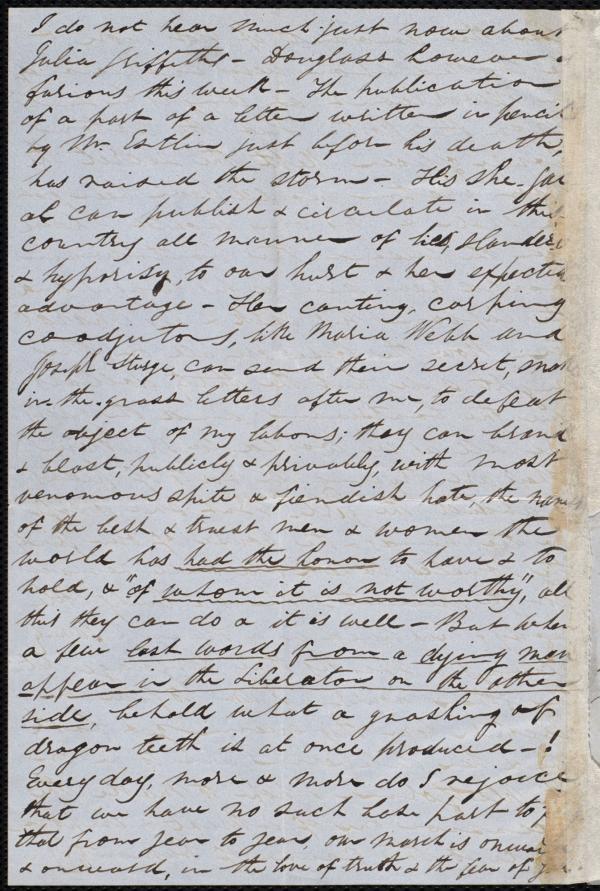 I do not hear much just now about
Julia Griffiths - Douglass however is
furious this week - The publication
of a part of a letter written in pencil
by Mr. Estlin just before his death,
has raised the storm - His she-
al can publish & circulate in this
country all manner of lies, slanders
& hyporisy, to our hurt & her expected
advantage - Her canting, carping
coadjutors, like Maria Webb and
Joseph Sturge, can send their secret,
in-the-grass letters after me, to defeat
the object of my labors; they can brand
& blast, publicly & privately, with most
venomous spite & fiendish hate, the names
of the best & truest men & women the
world has had the honor to have & to
hold, & "of whom it is not worthy", all
this they can do & it is well - But when
a few last words from a dying man
appear in the Liberator on the other
side, behold what a gnashing of
dragon teeth is at once produced - !
Every day, more & more do I rejoice
that we have no such base part to
that from year to year, our march is onward
& onward, in the love of truth & the fear of